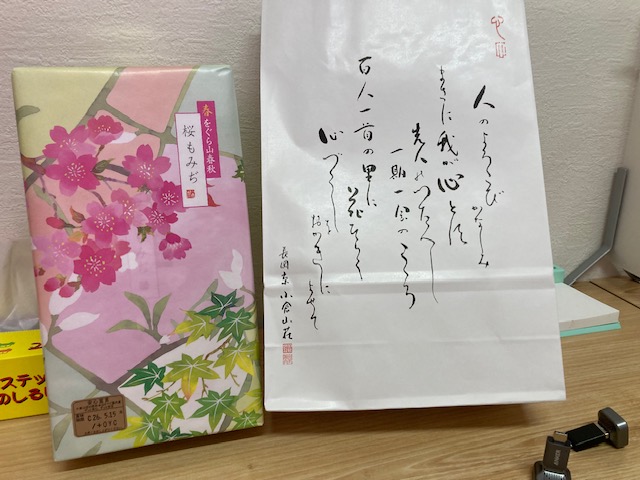 春
をぐら山春秋
桜もみぢ
26. 5.15
/+OYC
ステッ
のしる
人のよろこび
かなしみ
まさに我が心として
先人のつたへし
一期一会のこころ
百人一首の里に
花ひらく
心づくし
長岡京 小倉山荘